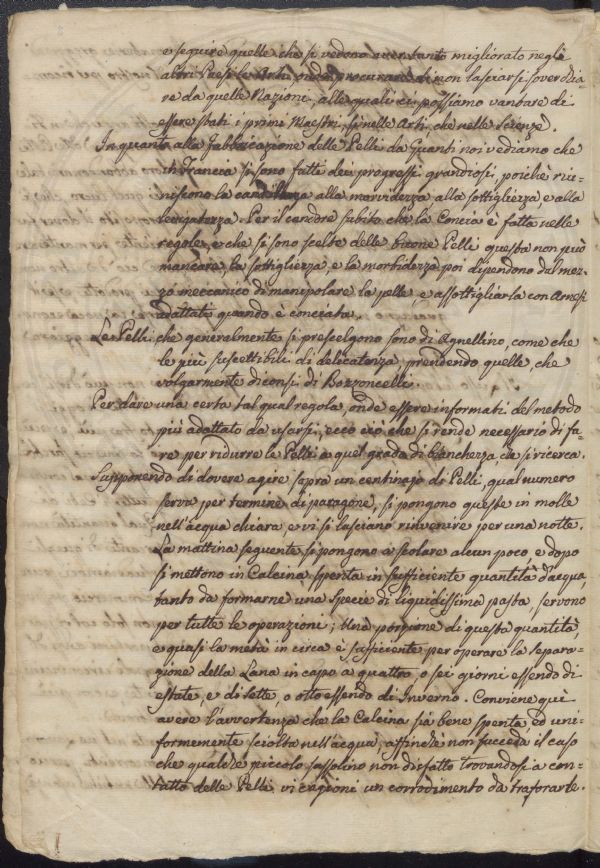 e seguire quelle che si vedono avere tanto migliorato negli
altri Paesi le Arti, onde procurare di non lasciarsi soverchia-
re da quelle Nazioni, alle quali ci possiamo vantare di
essere stati i primi Maestri, sì nelle Arti, che nelle Scienze.
In quanto alla fabbricazione delle Pelli da Guanti noi vediamo che
in Francia si sono fatti dei progressi grandiosi, poichè riu-
niscono la candidezza alla morvidezza alla sottigliezza e alla
leggerezza. Per il candore subito che la Concia è fatta nelle
regole, e che si sono scelte delle buone Pelli questa non può
mancare, la sottigliezza, e la morbidezza poi dipendono dal mez-
zo meccanico di manipolare la pelle, e assottigliarla con Arnesi
adattati quando è conciata.
Le Pelli che generalmente si prescelgono sono di Agnellino, come che
le più suscettibili di delicatezza, prendendo quelle che
volgarmente diconsi di Bozzoncelli.
Per dare una certa tal qual regola, onde essere informati del metodo
più adattato da usarsi, ecco ciò che si rende necessario di fa-
re per ridurre le Pelli a quel grado di bianchezza, che si ricerca.
Supponendo di dovere agire sopra un centinajo di Pelli, qual numero
serva per termine di paragone, si pongono queste in molle
nell'acqua chiara e vi si lasciano rinvenire per una notte.
La mattina seguente si pongono a scolare alcun poco e dopo
si mettono in Calcina spenta in sufficiente quantità d'acqua,
tanto da formarne una specie di liquidissima pasta, servono
per tutte le operazioni; Una porzione di questa quantità,
e quasi la metà in circa è sufficiente per operare la separa-
zione della Lana in capo a quattro, o sei giorni essendo di
estate, e di sette, o otto essendo di Inverno. Conviene quì
avere l'avvertenza che la Calcina sia bene spenta, ed uni-
formemente sciolta nell'acqua, affinchè non succeda il caso
che qualche piccolo sassolino non disfatto trovandosi a con-
tatto delle Pelli vi cagioni un corrodimento da traforarle.